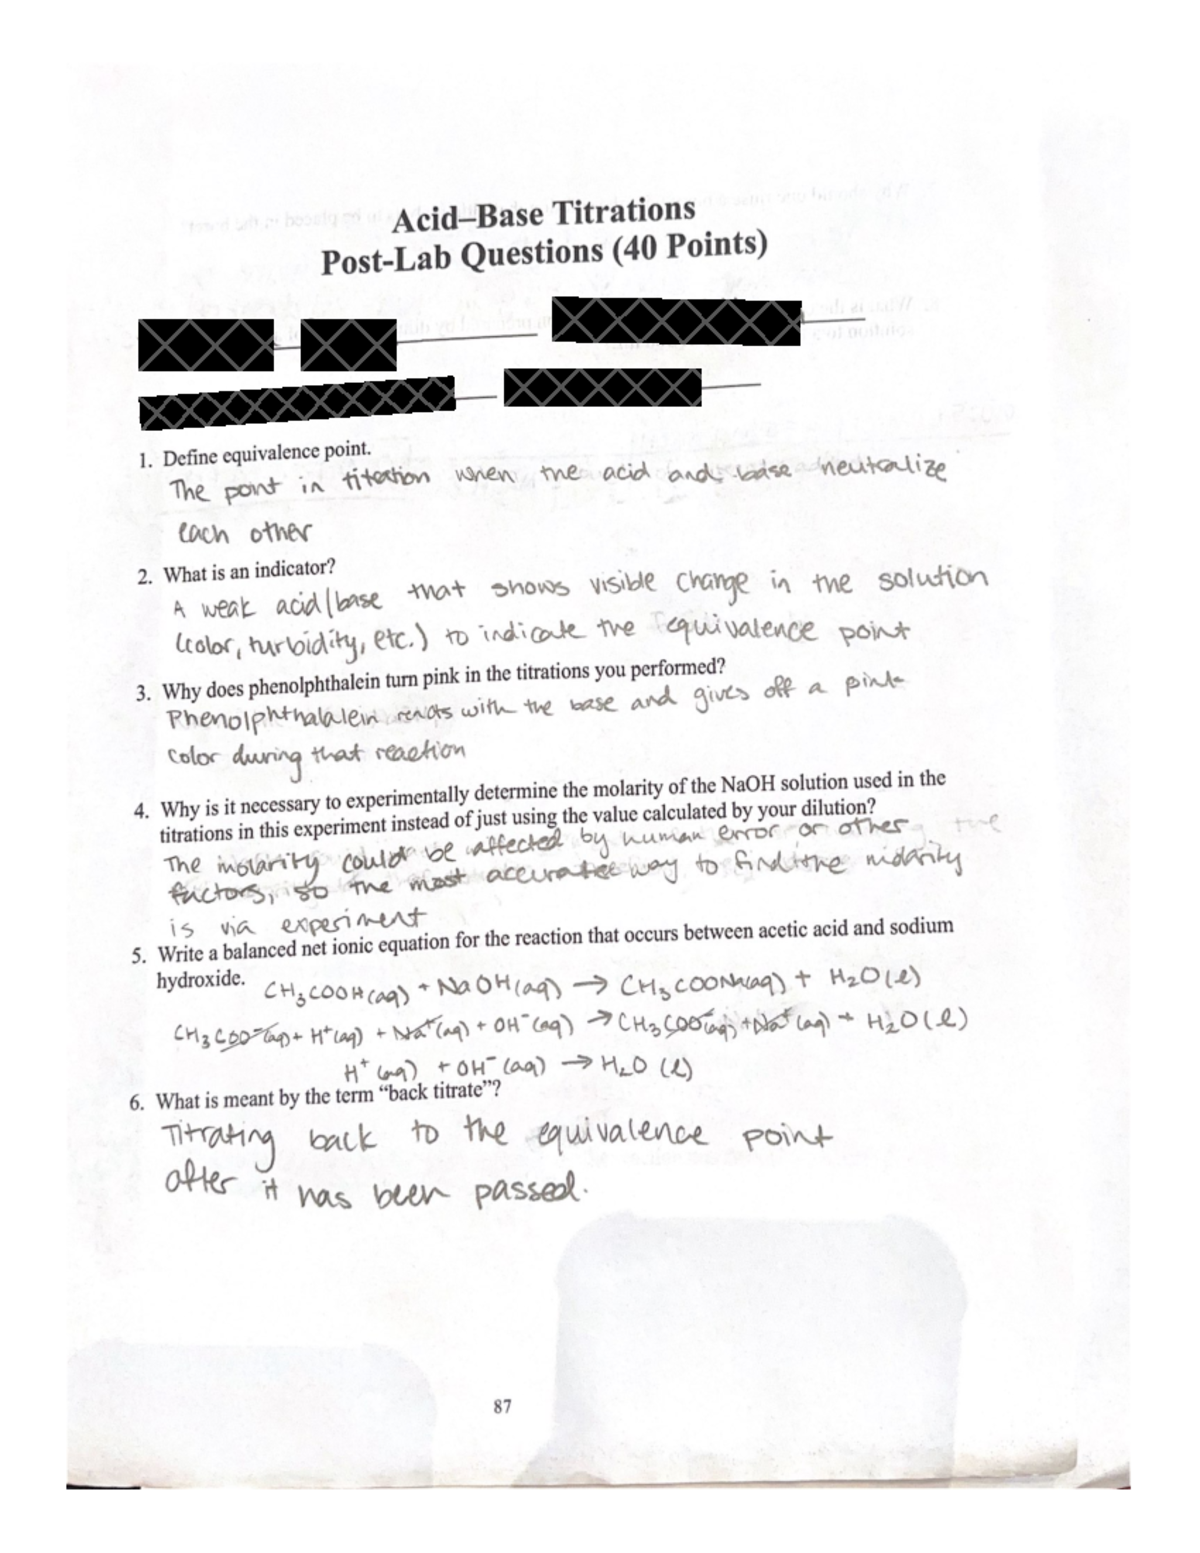 Acid–Base Titrations
Post-Lab Questions (40 Points)
1. Define equivalence point.
The point in titration when the acid and base neutralize
each other
2. What is an indicator?
A weak acid/base that shows visible change in the solution
(color, turbidity, etc.) to indicate the equivalence point
3. Why does phenolphthalein turn pink in the titrations you performed?
Phenolphthalalein reacts with the base and gives off a pink
color during that reaction
4. Why is it necessary to experimentally determine the molarity of the NaOH solution used in the
titrations in this experiment instead of just using the value calculated by your dilution?
The molarity could be affected by human error or other
factors, so the most accurate way to find the molarity
is via experiment
5. Write a balanced net ionic equation for the reaction that occurs between acetic acid and sodium
hydroxide.
CH₃COOH(aq) + NaOH(aq) → CH₃COONa(aq) + H₂O(l)
CH₃COO⁻(aq) + H⁺(aq) + Na⁺(aq) + OH⁻(aq) → CH₃COO⁻(aq) + Na⁺(aq) + H₂O(l)
H⁺(aq) + OH⁻(aq) → H₂O (l)
6. What is meant by the term “back titrate”?
Titrating back to the equivalence point
after it has been passed.
87